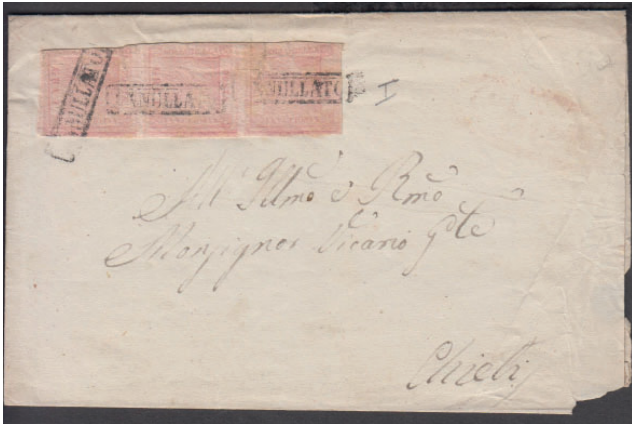 ANNULLATO
ANNULLATO
ANNULLATO
I
All' Illmo e Rmo
Monsignor Vicario Gle
Chieti